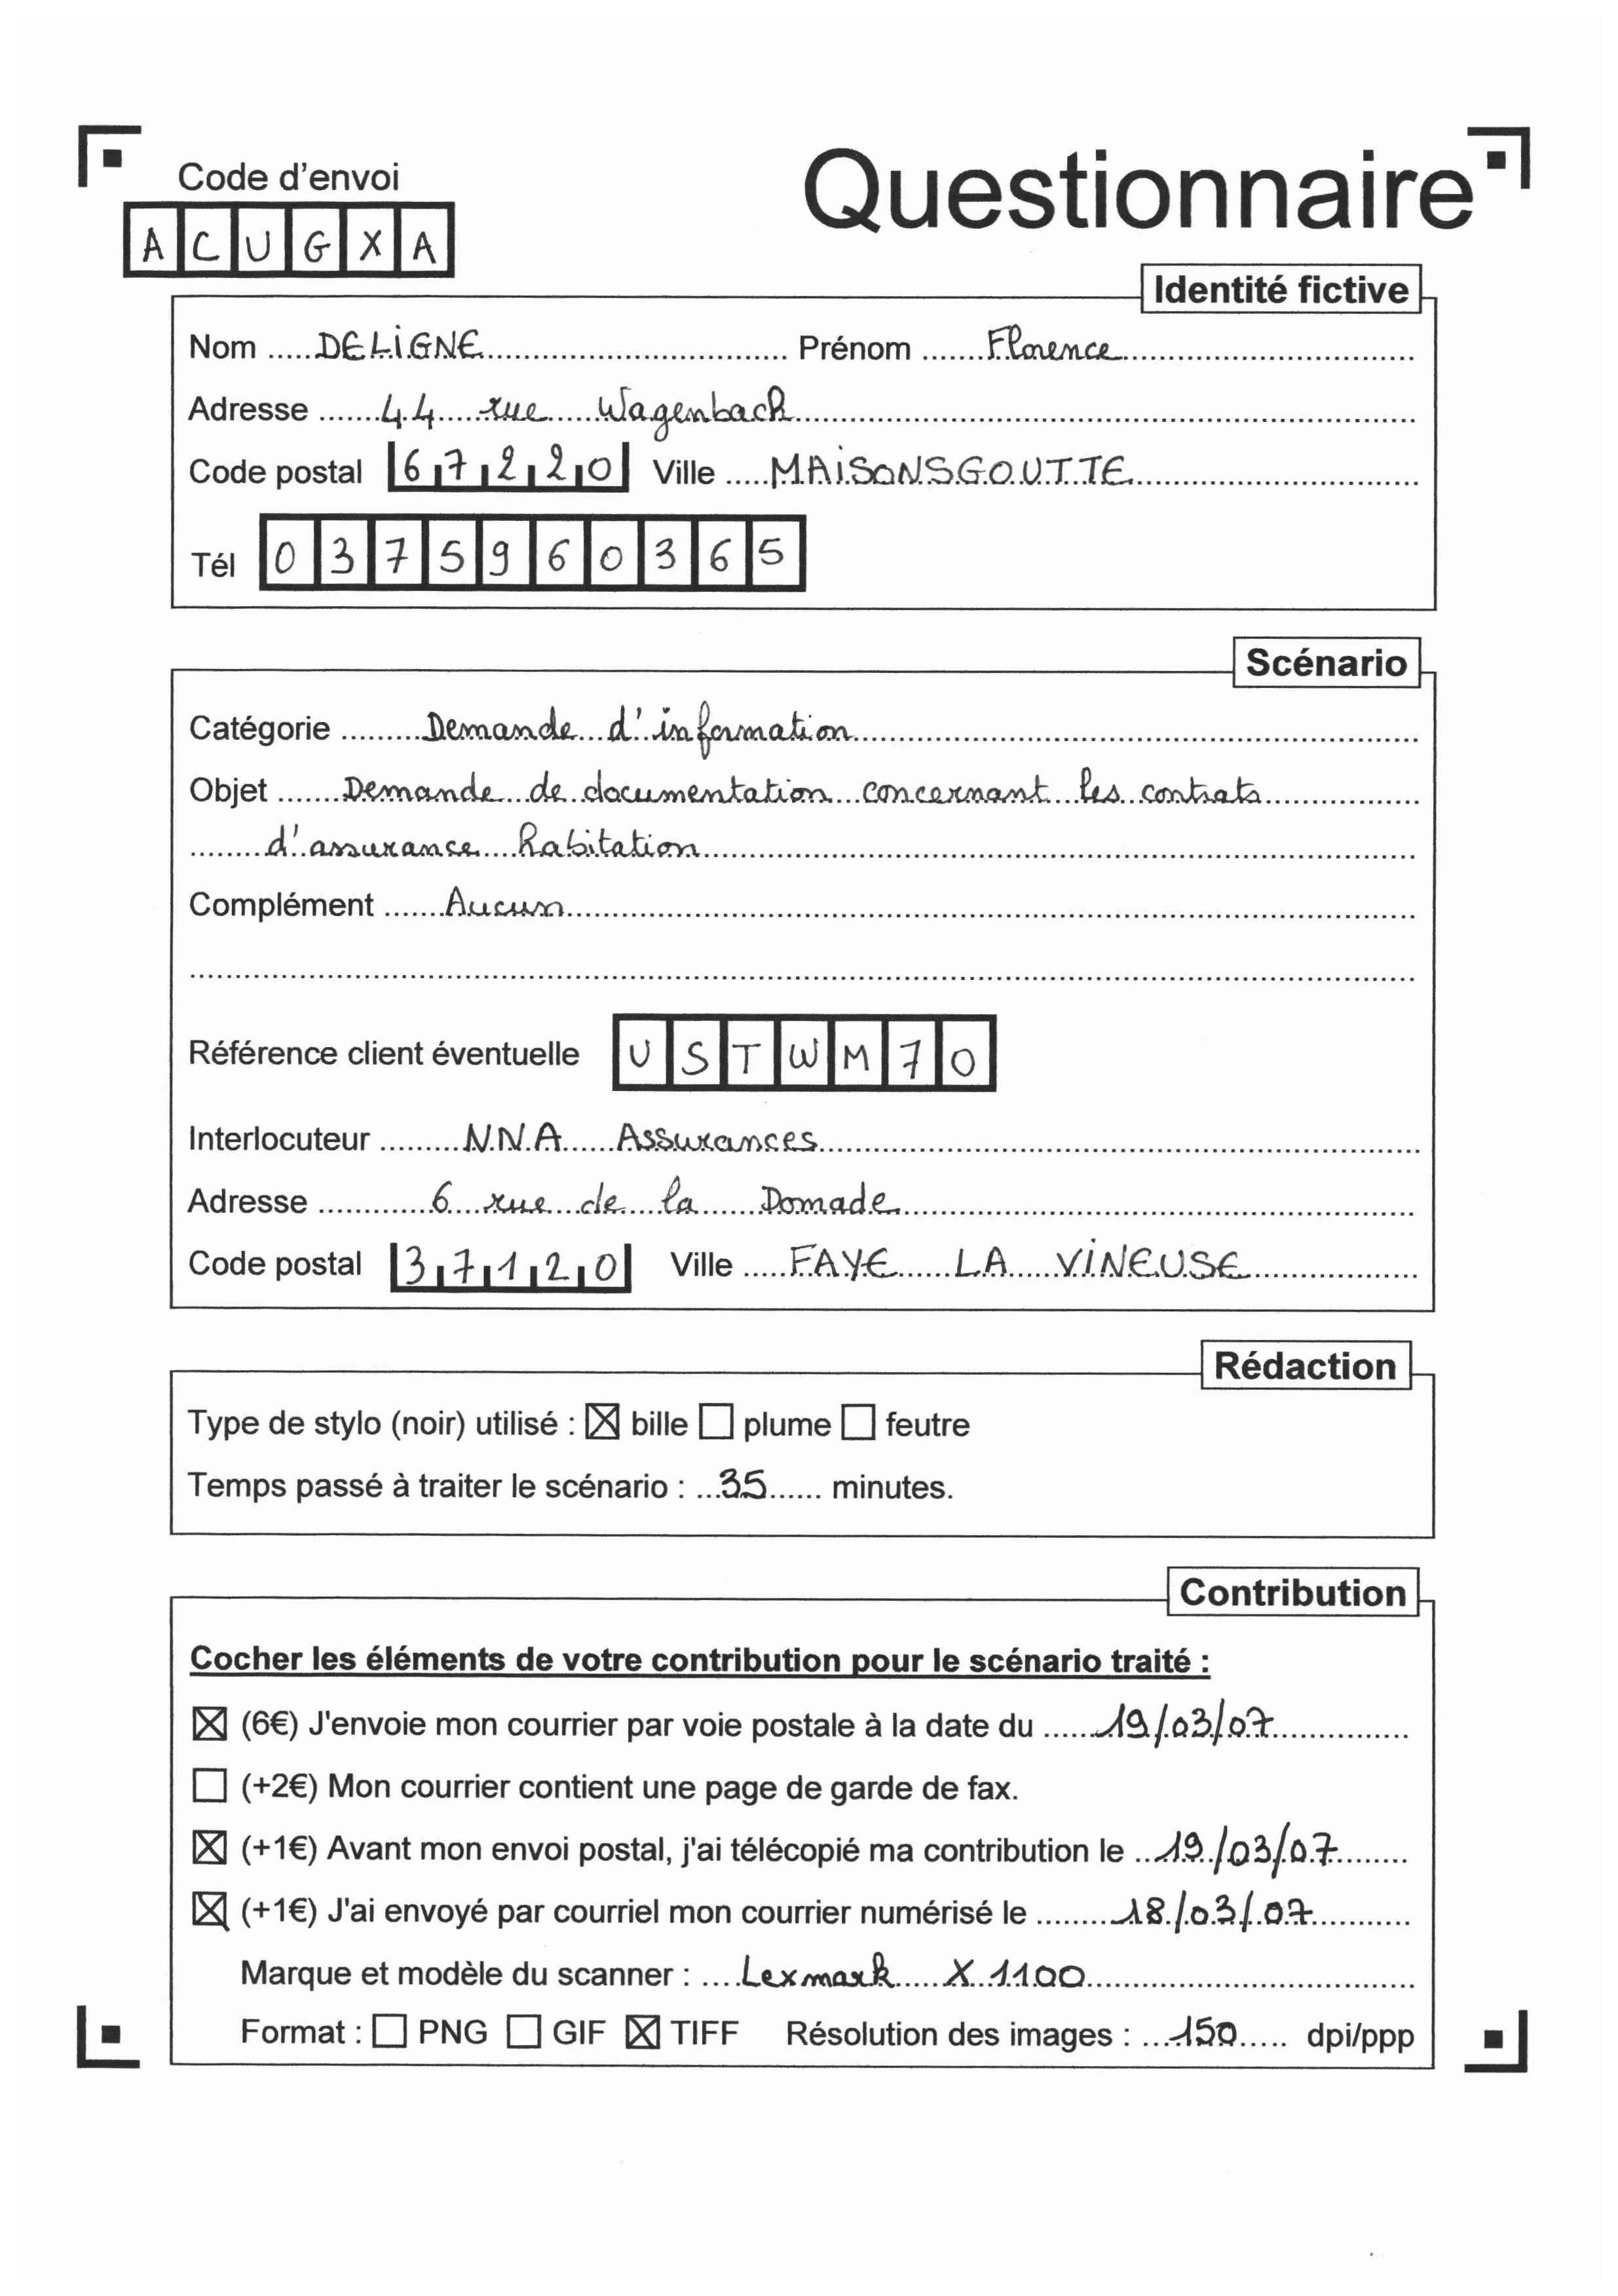 Code d'envoi
Questionnaire
ACUGXA
Identité fictive
Nom DELIGNE Prénom Florence
Adresse 44 rue Wagenbach
Code postal 67220 Ville MAISONSGOUTTE
Tél 0375960365
Scénario
Catégorie Demande d'information
Objet Demande de documentation concernant les contrats
d'assurance habitation
Complément Aucun
Référence client éventuelle USTWM70
Interlocuteur NNA Assurances
Adresse 6 rue de la Domade
Code postal 37120 Ville FAYE LA VINEUSE
Rédaction
Type de stylo (noir) utilisé : ☒ bille ☐ plume ☐ feutre
Temps passé à traiter le scénario : 35 minutes.
Contribution
Cocher les éléments de votre contribution pour le scénario traité :
☒ (6€) J'envoie mon courrier par voie postale à la date du 19/03/07
☐ (+2€) Mon courrier contient une page de garde de fax.
☒ (+1€) Avant mon envoi postal, j'ai télécopié ma contribution le 19/03/07
☒ (+1€) J'ai envoyé par courriel mon courrier numérisé le 18/03/07
Marque et modèle du scanner : Lexmark X 1100
Format : ☐ PNG ☐ GIF ☒ TIFF Résolution des images : 150 dpi/ppp